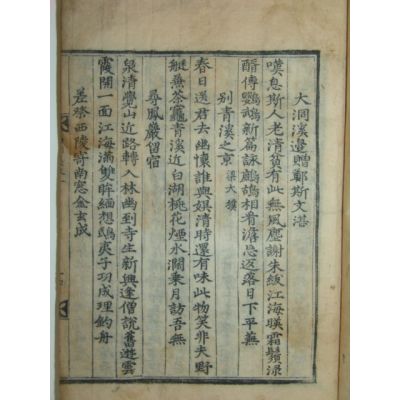 大洞溪邊贈鄭斯文湛
嘆息斯人老清貧有此無風塵謝朱紱江海暎霜鬚淥
醑傳鸚鵡新篇詠鷓鴣相看澹忘返落日下平蕪
别青溪之京 梁大樸
春日送君去幽懷誰與娛清時還有味此物笑非夫野
艇兼茶竈青溪近白湖桃花煙水濶乘月訪吾無
尋鳳巖留宿
泉清覺山近路轉入林幽到寺生新興逢僧說舊遊雲
霞開一面江海滿雙眸緬想鴟夷子功成理釣舟
差祭西陵寄南窓金玄成